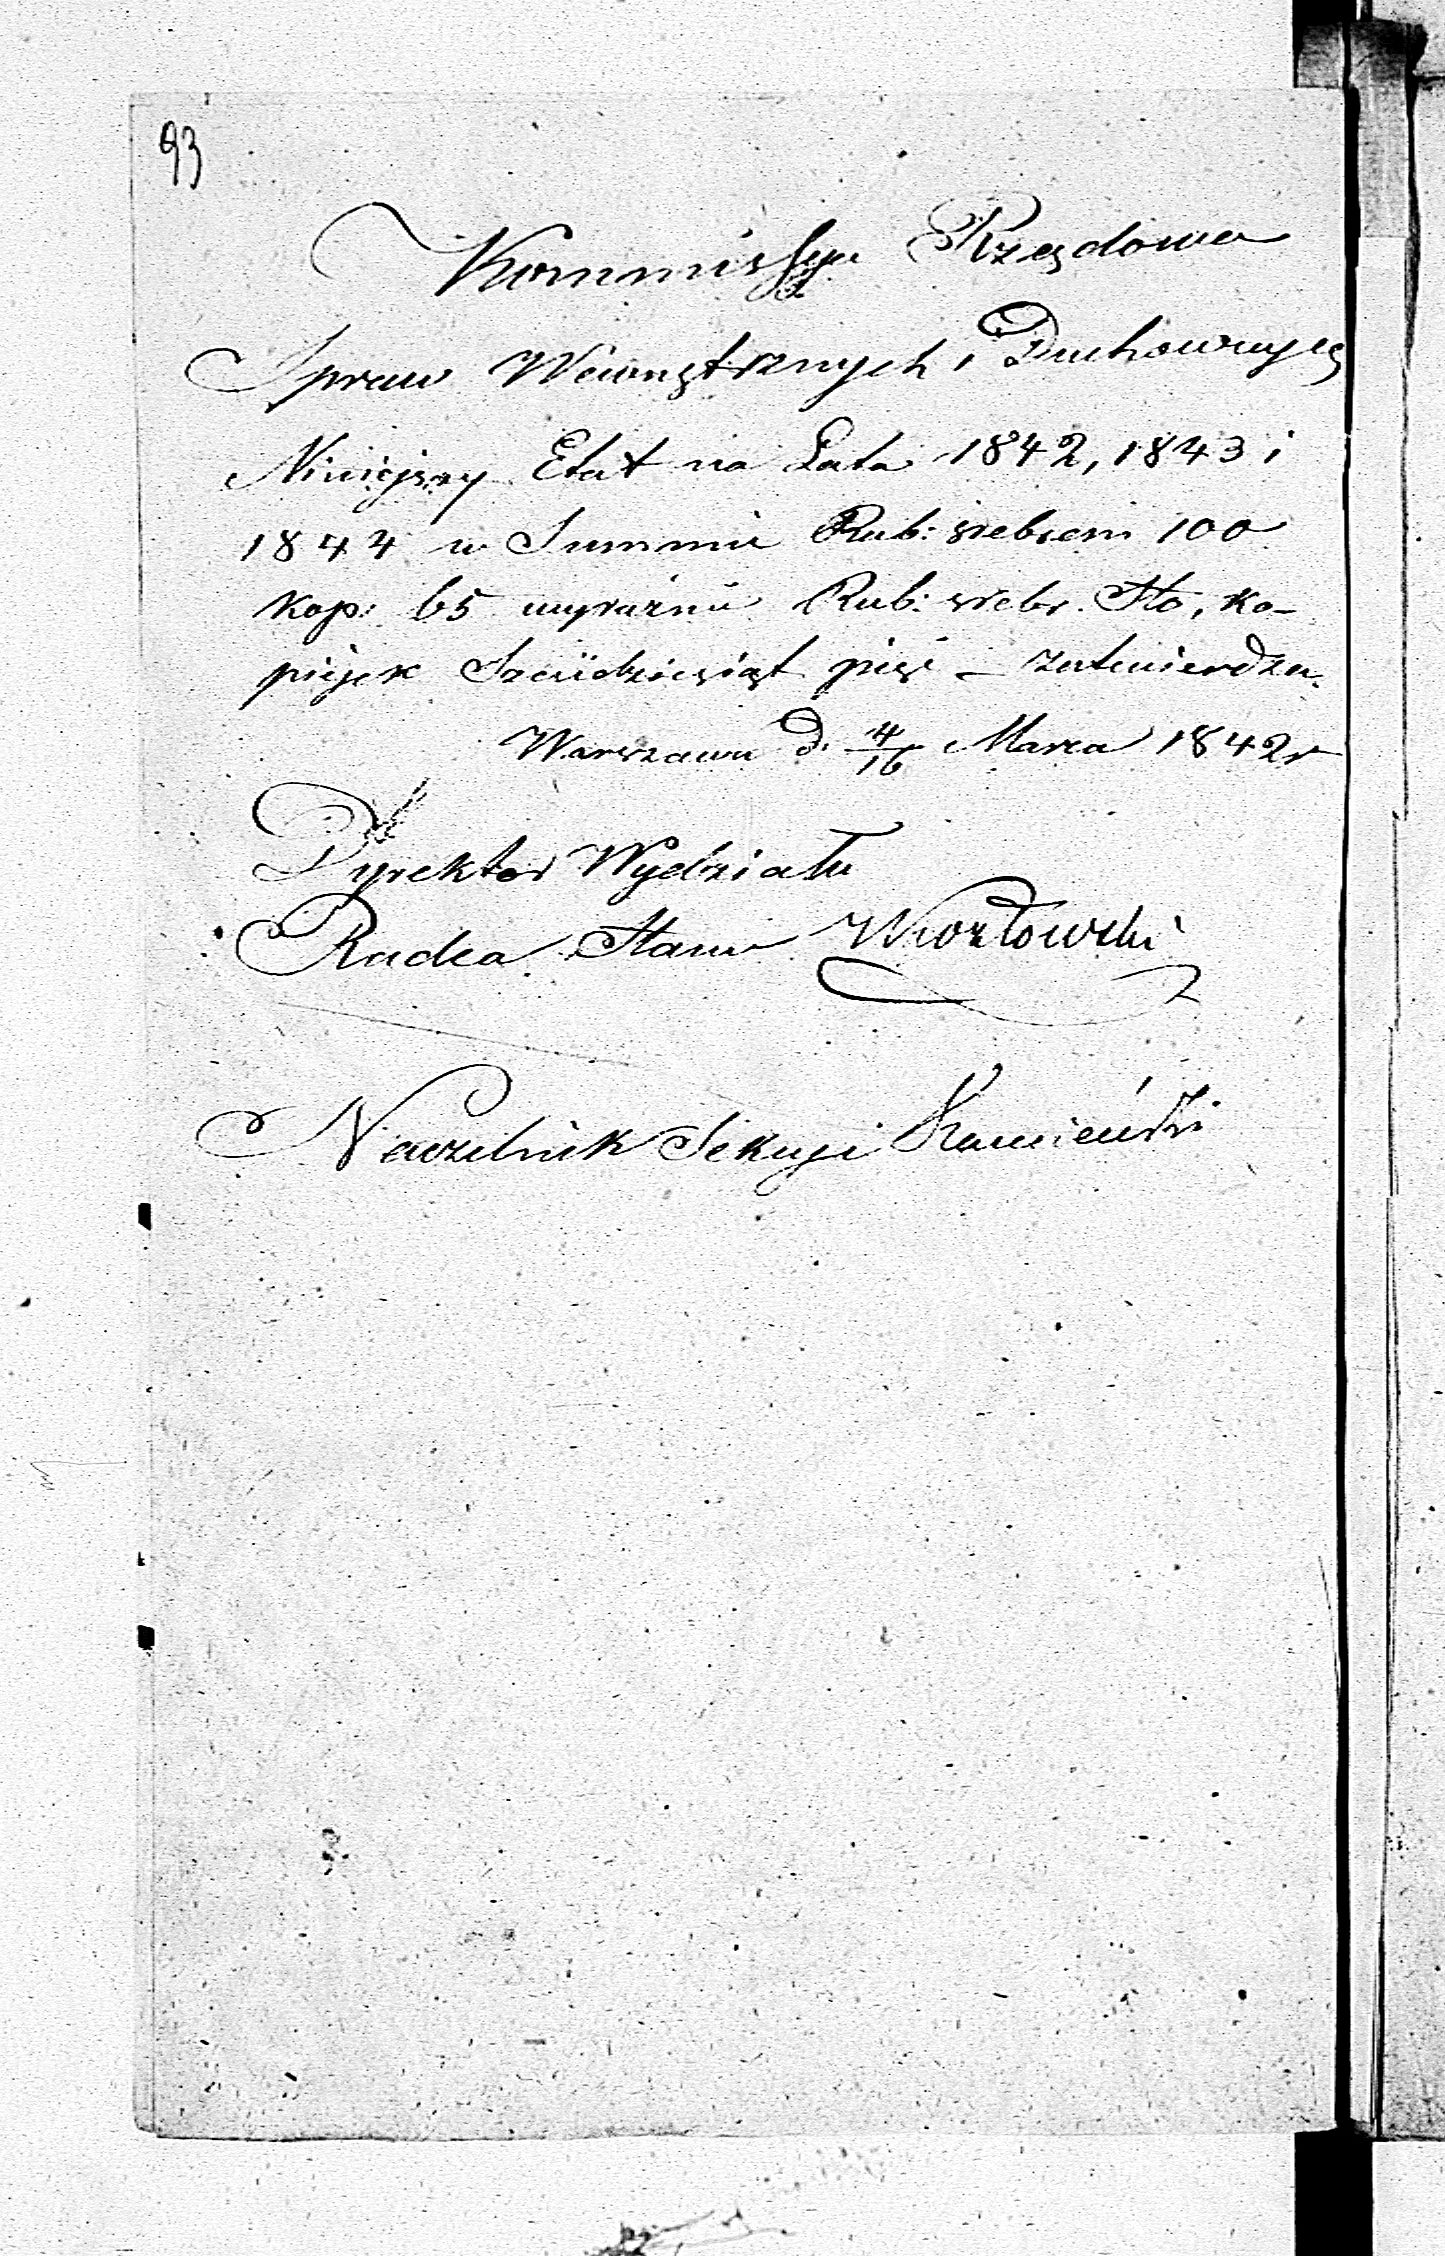 93
Kommissya Rządowa
Spraw Wewnętrznych i Duchownych
Niniejszy Etat na Lata 1842, 1843 i
1844 w Summie Rub: srebrem 100
kop: 65 wyraźnie Rub: srebr. Sto, ko-
piejek Sześćdziesiąt pięć – zatwierdza.
Warszawa d. 4/16 Marca 1842 r
Dyrektor Wydziału
Radca Stanu Kozłowski
Naczelnik Sekcyi Kamieński